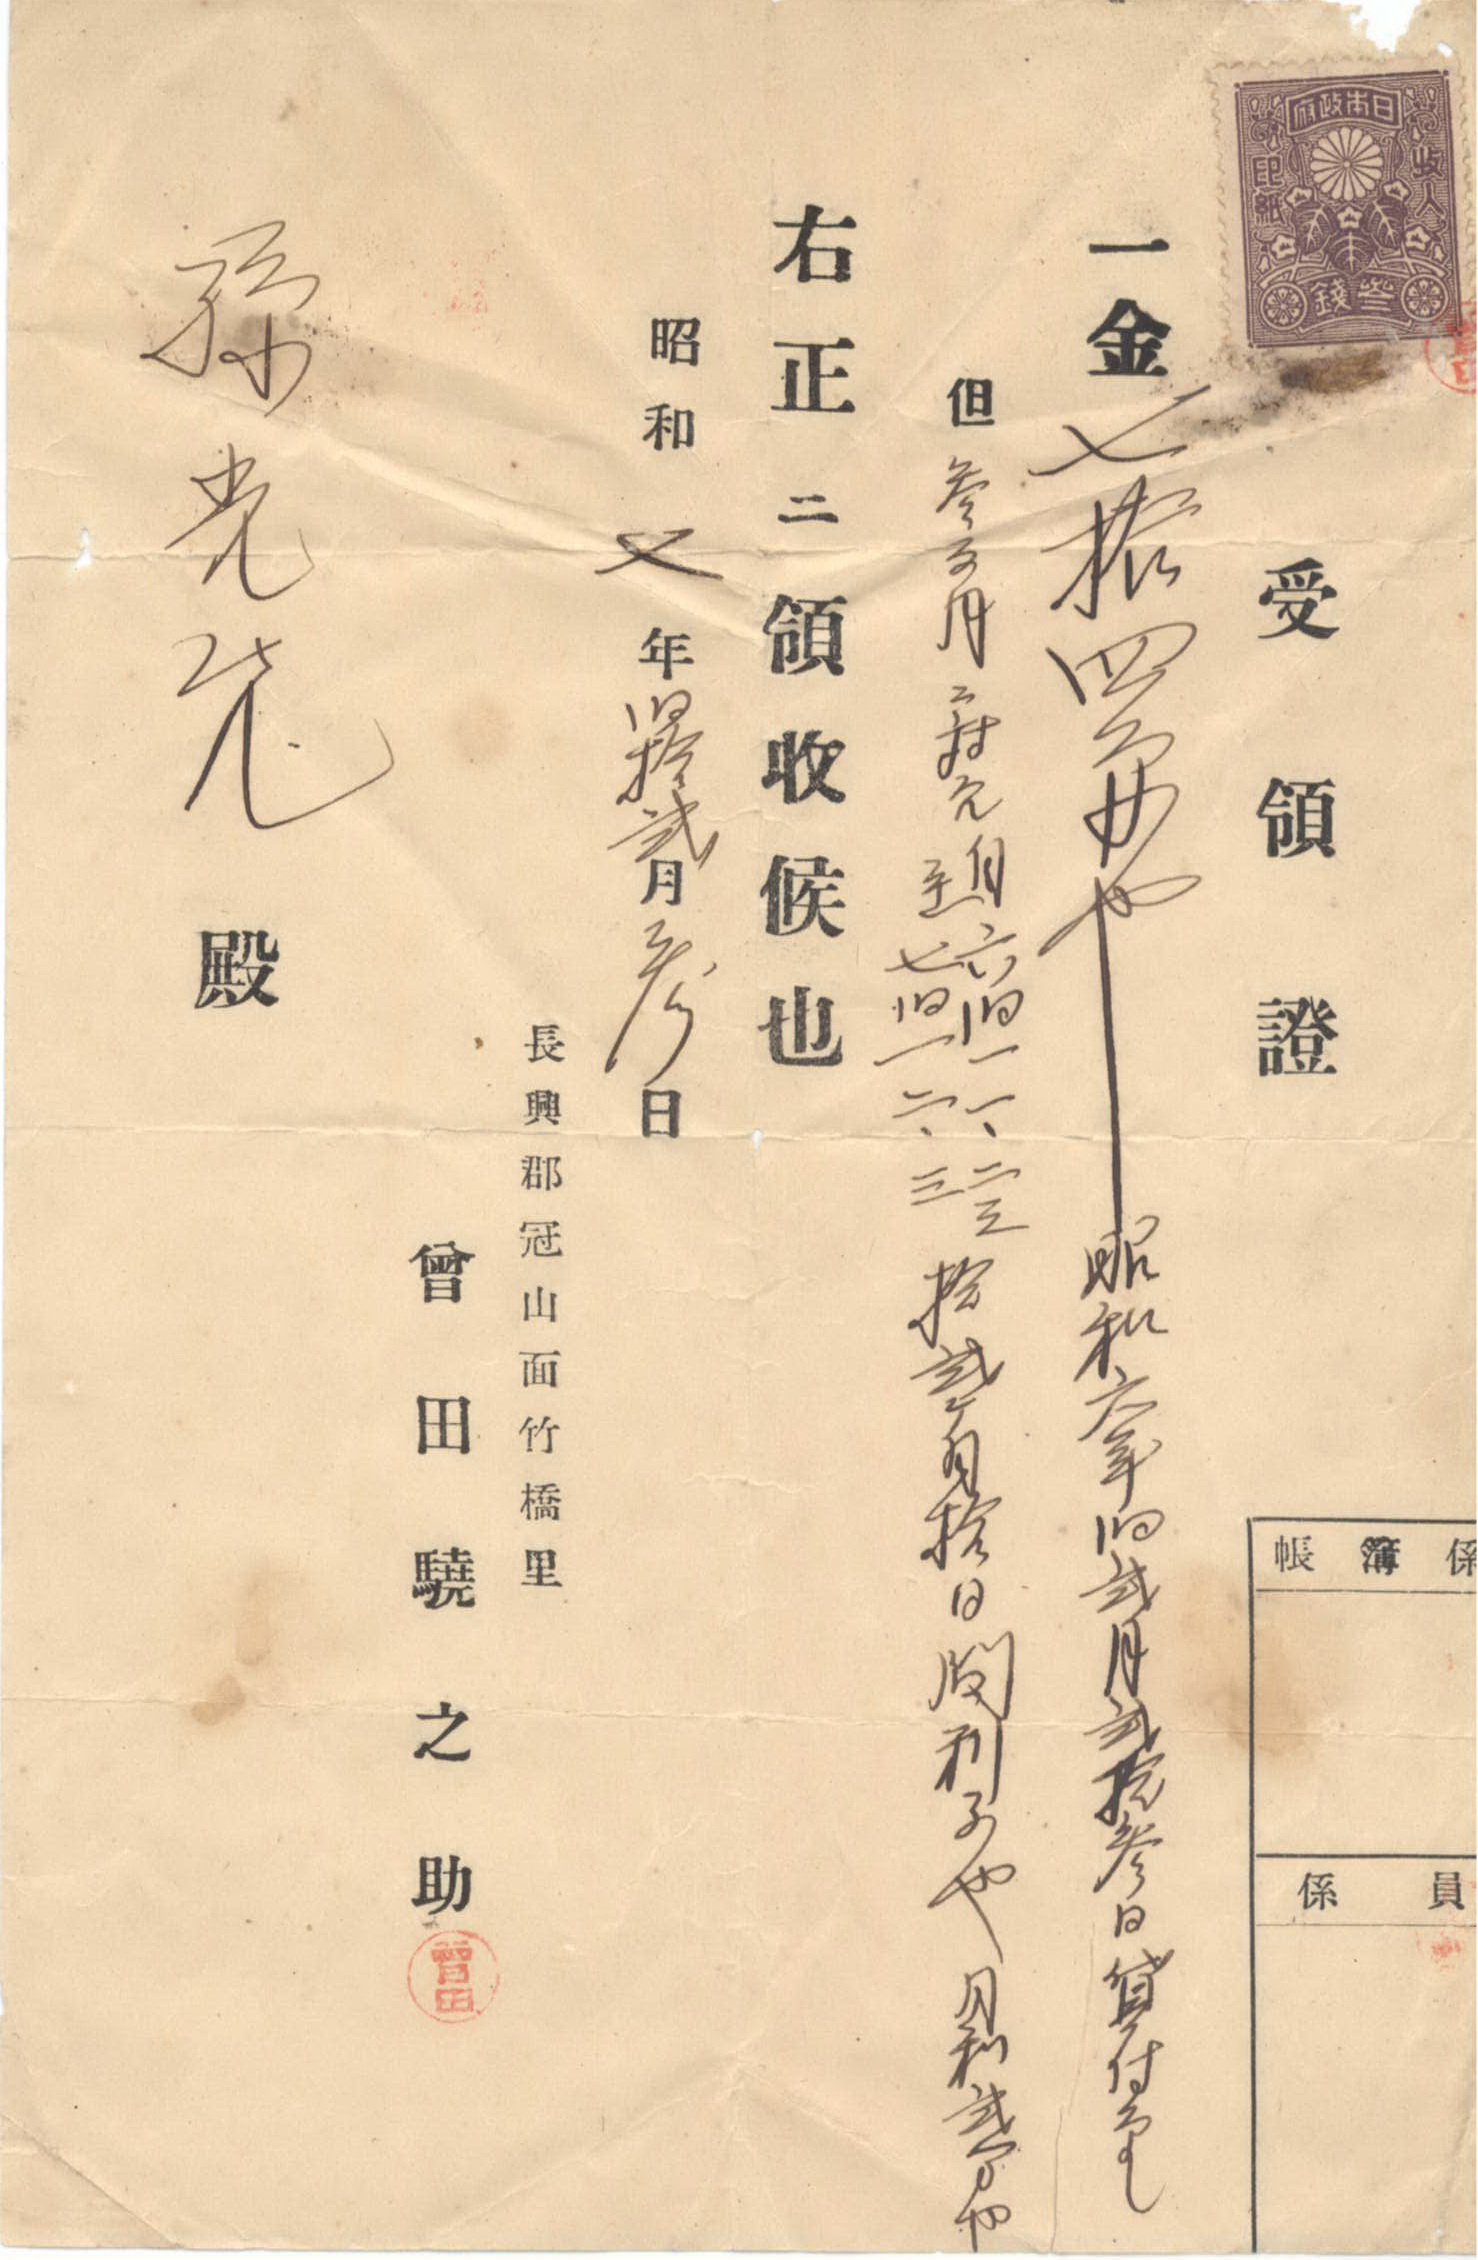 日本政府
收入
印紙
參錢
受領證
一金七拾四円也 昭和六年旧貳月貳拾參日貸付
但 參百円ニ対 自六旧一一、二三
至七旧一二、三 拾貳ケ月拾日間利子也 月利貳分也
右正ニ領收候也
昭和七年旧拾貳月參日
長興郡冠山面竹橋里
曾田驍之助
曾田
孫光 殿
係
簿
帳
員
係